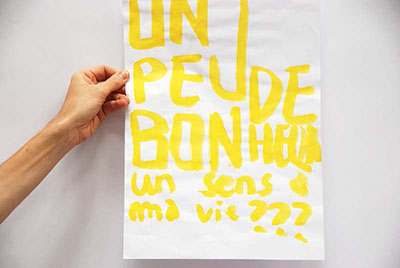 UN
PEU DE
BONHEUR
un sens à
ma vie???